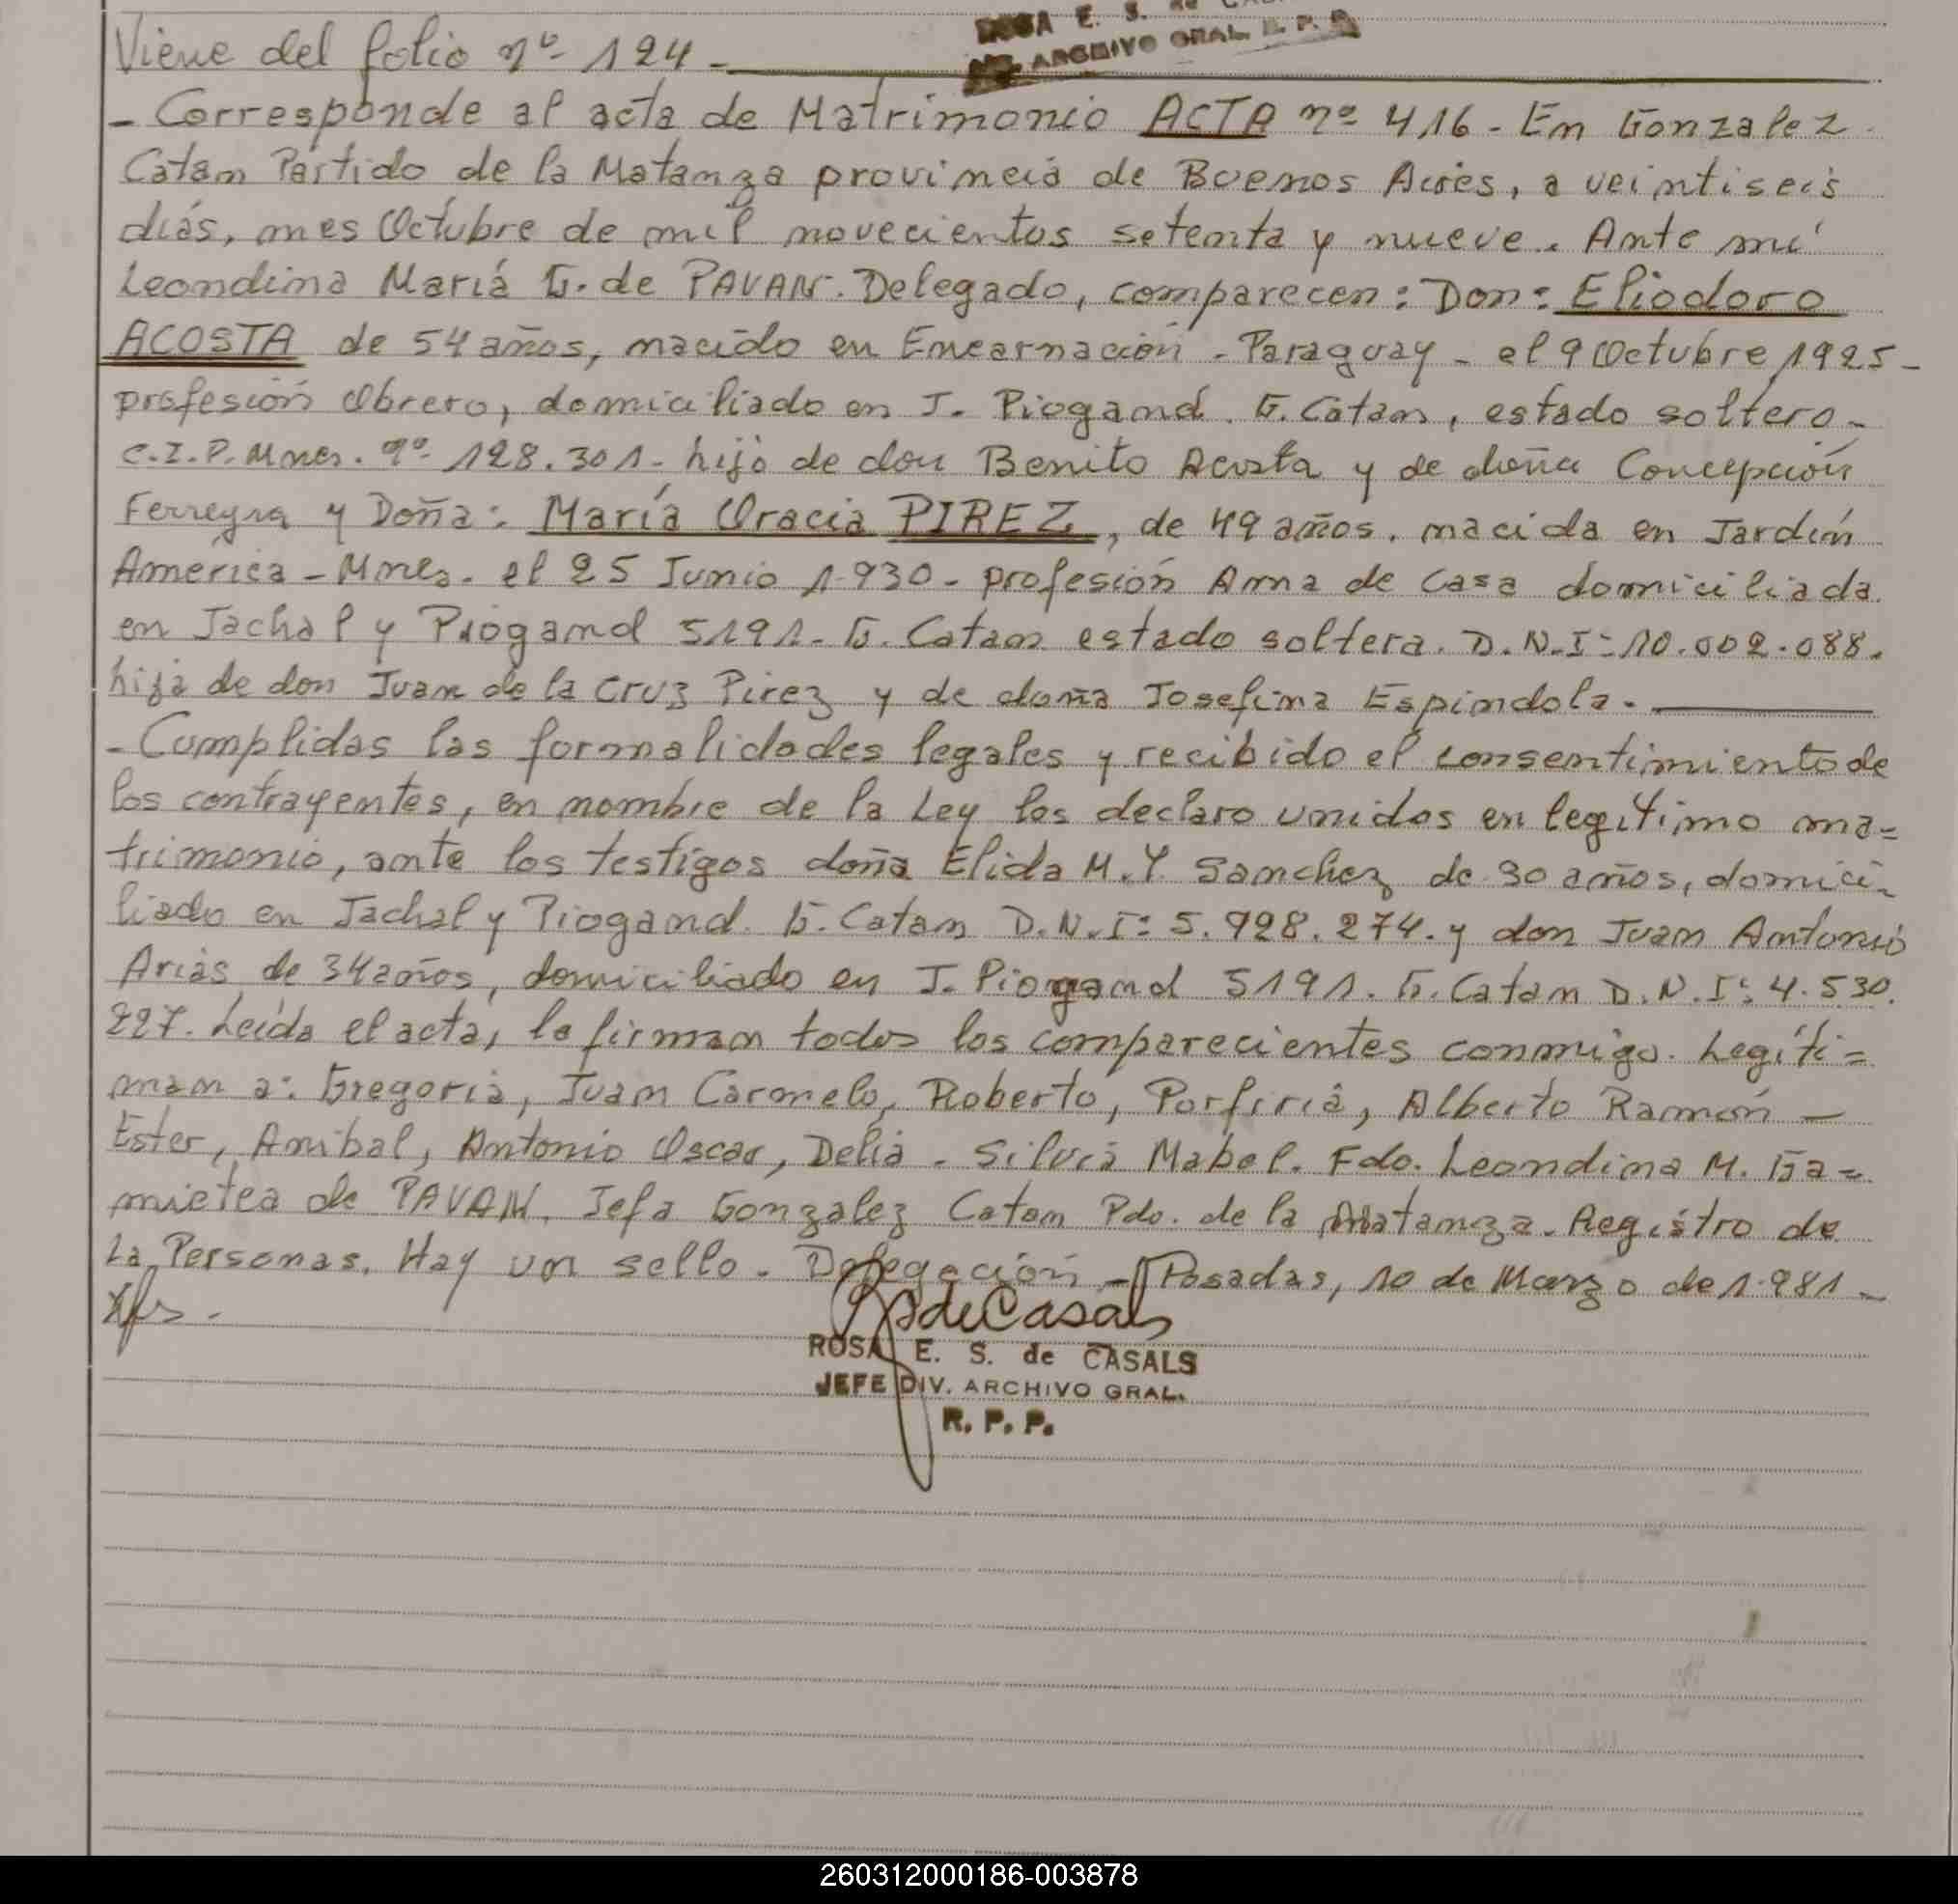 ROSA E. S. de
ARCHIVO GRAL. R. P. P.
Viene del folio nº 124 -
- Corresponde al acta de Matrimonio ACTA nº 416 - En Gonzalez
Catan Partido de la Matanza provincia de Buenos Aires, a veintiseis
días, mes Octubre de mil novecientos setenta y nueve. Ante mí
Leondina María G. de PAVAN. Delegado, comparecen: Don: Eliodoro
ACOSTA de 54 años, nacido en Encarnación - Paraguay - el 9 Octubre 1925 -
profesión Obrero, domiciliado en J. Piogand. G. Catan, estado soltero -
C.I.P. Mnes. nº 128.301 - hijo de don Benito Acosta y de doña Concepción
Ferreyra y Doña: María Oracia PIREZ, de 49 años, nacida en Jardín
América - Mnes. el 25 Junio 1.930 - profesión Ama de Casa domiciliada
en Jachal y Piogand 5191 - G. Catan estado soltera. D.N.I: 10.002.088.
hija de don Juan de la Cruz Pirez y de doña Josefina Espindola.
- Cumplidas las formalidades legales y recibido el consentimiento de
los contrayentes, en nombre de la Ley los declaro unidos en legítimo ma=
trimonio, ante los testigos doña Elida M.Y. Sanchez de 30 años, domici-
liado en Jachal y Piogand. G. Catan D.N.I: 5.928.274. y don Juan Antonio
Arias de 34 años, domiciliado en J. Piogand 5191. G. Catan D.N.I: 4.530.
227. Leída el acta, la firman todos los comparecientes conmigo. Legíti=
man a: Gregoria, Juan Carmelo, Roberto, Porfiria, Alberto Ramón -
Ester, Anibal, Antonio Oscar, Delia - Silvia Mabel. Fdo. Leondina M. Ga=
mietea de PAVAN. Jefa Gonzalez Catan Pdo. de la Matanza. Registro de
La Personas. Hay un sello. Delegación - Posadas, 10 de Marzo de 1.981 -
deCasals
ROSA E. S. de CASALS
JEFE DIV. ARCHIVO GRAL.
R. P. P.
260312000186-003878